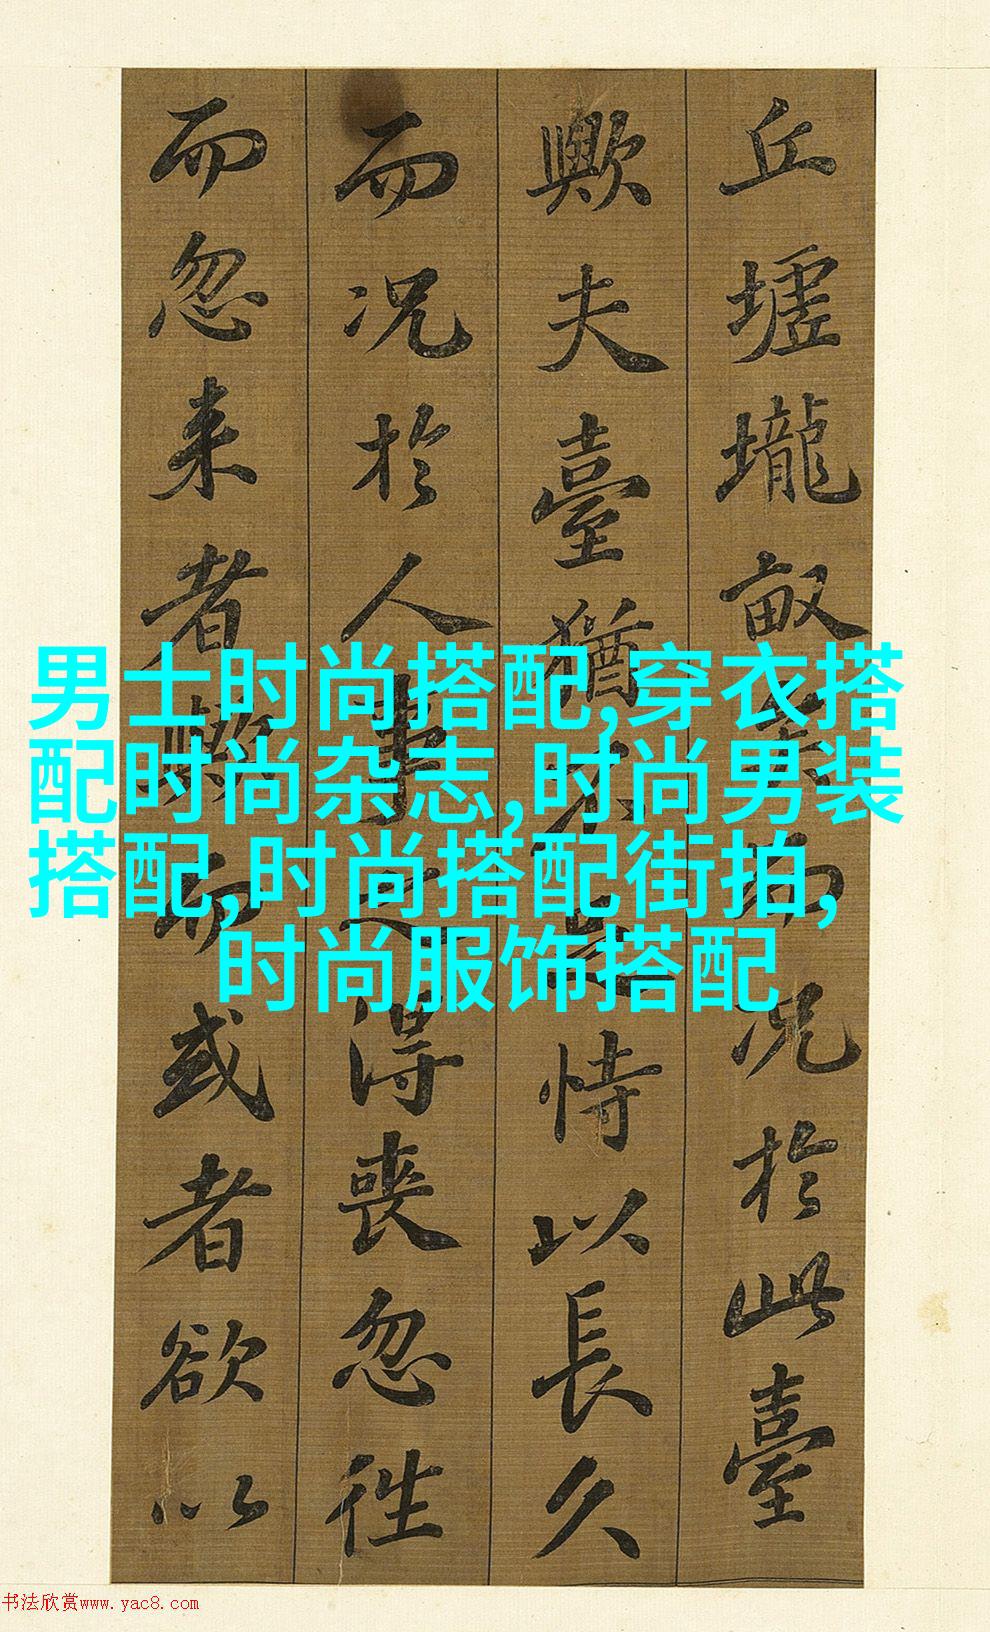 丘墟壠畝矣而况於此臺
歟夫臺猶不足恃以長久
而况於人事之得喪忽往
而忽来者歟而或者欲以
男士时尚搭配,穿衣搭
配时尚杂志,时尚男装
搭配,时尚搭配街拍,
时尚服饰搭配
书法欣赏www.yac8.com